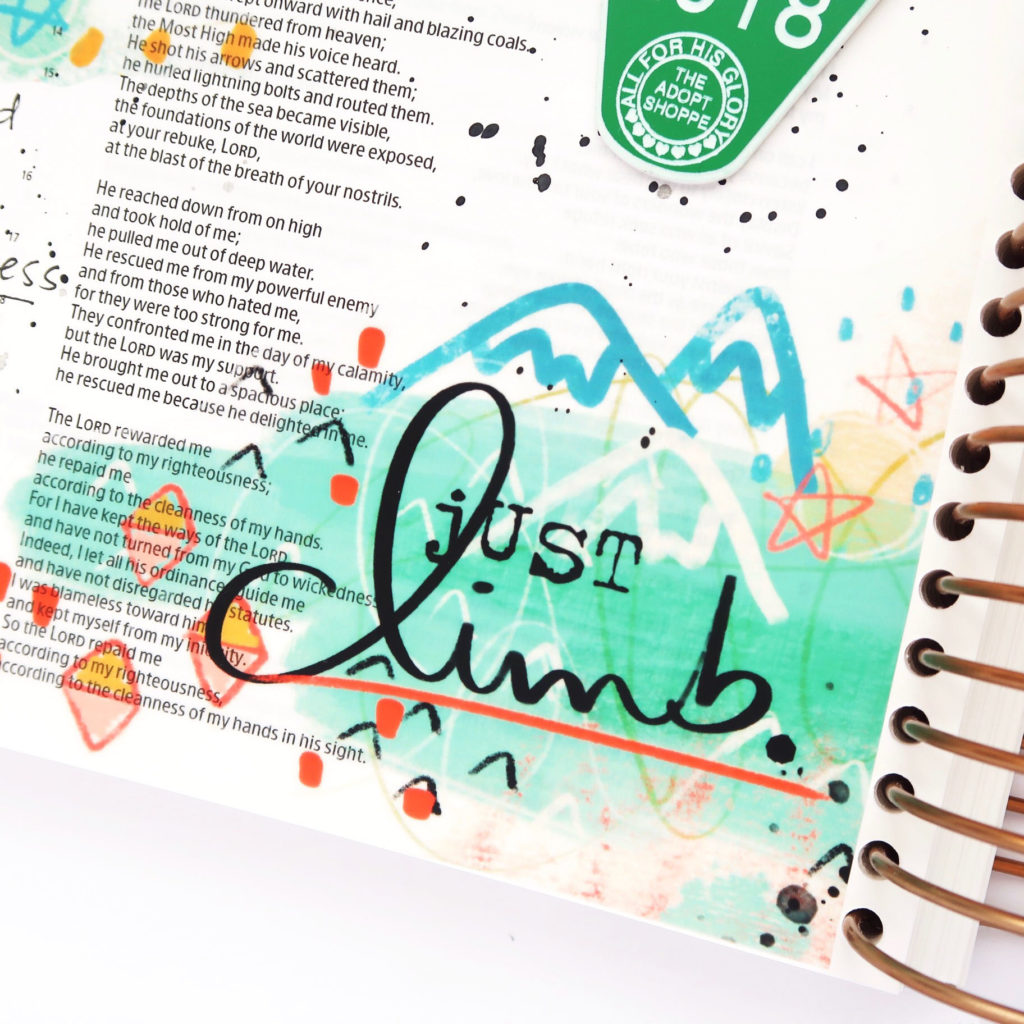 onward with hail and blazing coals.
The LORD thundered from heaven;
the Most High made his voice heard.
He shot his arrows and scattered them;
he hurled lightning bolts and routed them.
The depths of the sea became visible,
the foundations of the world were exposed,
at your rebuke, LORD,
at the blast of the breath of your nostrils.
He reached down from on high
and took hold of me;
he pulled me out of deep water.
He rescued me from my powerful enemy
and from those who hated me,
for they were too strong for me.
They confronted me in the day of my calamity,
but the LORD was my support.
He brought me out to a spacious place;
he rescued me because he delighted in me.
The LORD rewarded me
according to my righteousness;
he repaid me
according to the cleanness of my hands.
For I have kept the ways of the LORD
and have not turned from my God to wickedness
Indeed, I let all his ordinances guide me
and have not disregarded his statutes.
I was blameless toward him
and kept myself from my iniquity.
So the LORD repaid me
according to my righteousness,
according to the cleanness of my hands in his sight.
14
15
16
17
ess
jUST
climb.
18
ALL FOR HIS GLORY
THE
ADOPT
SHOPPE